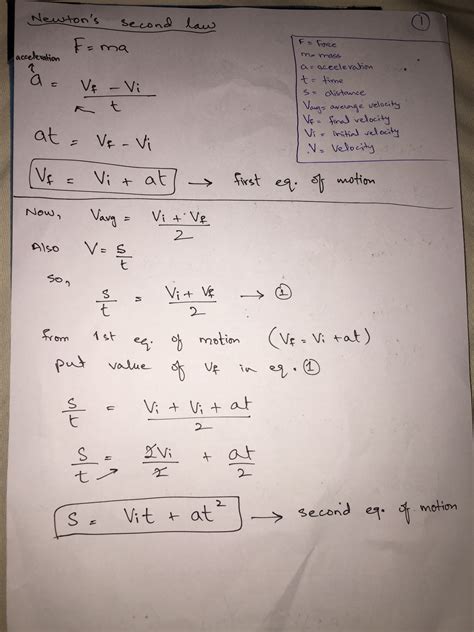 Newton's second law
1
F = ma
acceleration
a = Vf - Vi / t
at = Vf - Vi
Vf = Vi + at → first eq. of motion
F = Force
m = mass
a = acceleration
t = time
s = distance
Vavg = average velocity
Vf = final velocity
Vi = initial velocity
V = Velocity
Now, Vavg = Vi + Vf / 2
Also V = s / t
so, s / t = Vi + Vf / 2 → 1
from 1st eq. of motion (Vf = Vi + at)
put value of Vf in eq. 1
s / t = Vi + Vi + at / 2
s / t = 2Vi / 2 + at / 2
S = Vit + at² → second eq. of motion